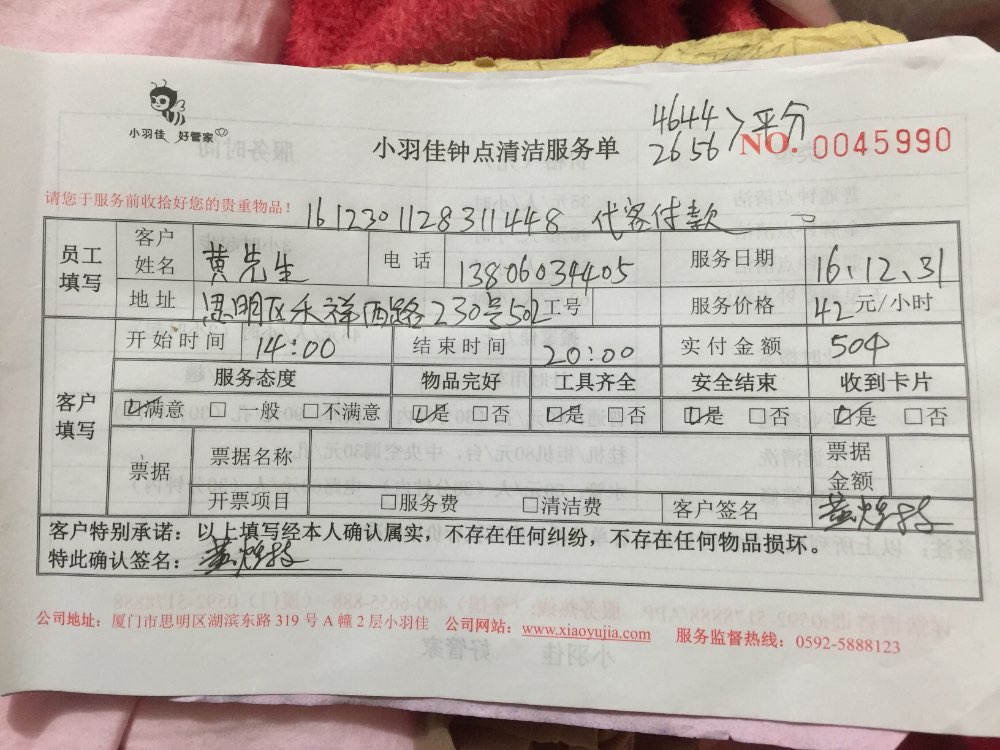 小羽佳 好管家
小羽佳钟点清洁服务单
4644
2656 平分
NO. 0045990
请您于服务前收拾好您的贵重物品！
161230112831 1448 代客付款
员工填写 客户姓名 黄先生 电话 13806034405 服务日期 16.12.31
地址 思明区禾祥西路230号502 工号 服务价格 42元/小时
客户填写 开始时间 14:00 结束时间 20:00 实付金额 504
服务态度 物品完好 工具齐全 安全结束 收到卡片
☑满意 □一般 □不满意 ☑是 □否 ☑是 □否 ☑是 □否 ☑是 □否
票据 票据名称 票据金额
开票项目 □服务费 □清洁费 客户签名
客户特别承诺：以上填写经本人确认属实，不存在任何纠纷，不存在任何物品损坏。
特此确认签名：
公司地址：厦门市思明区湖滨东路 319 号 A 幢 2 层小羽佳 公司网站：www.xiaoyujia.com 服务监督热线：0592-5888123